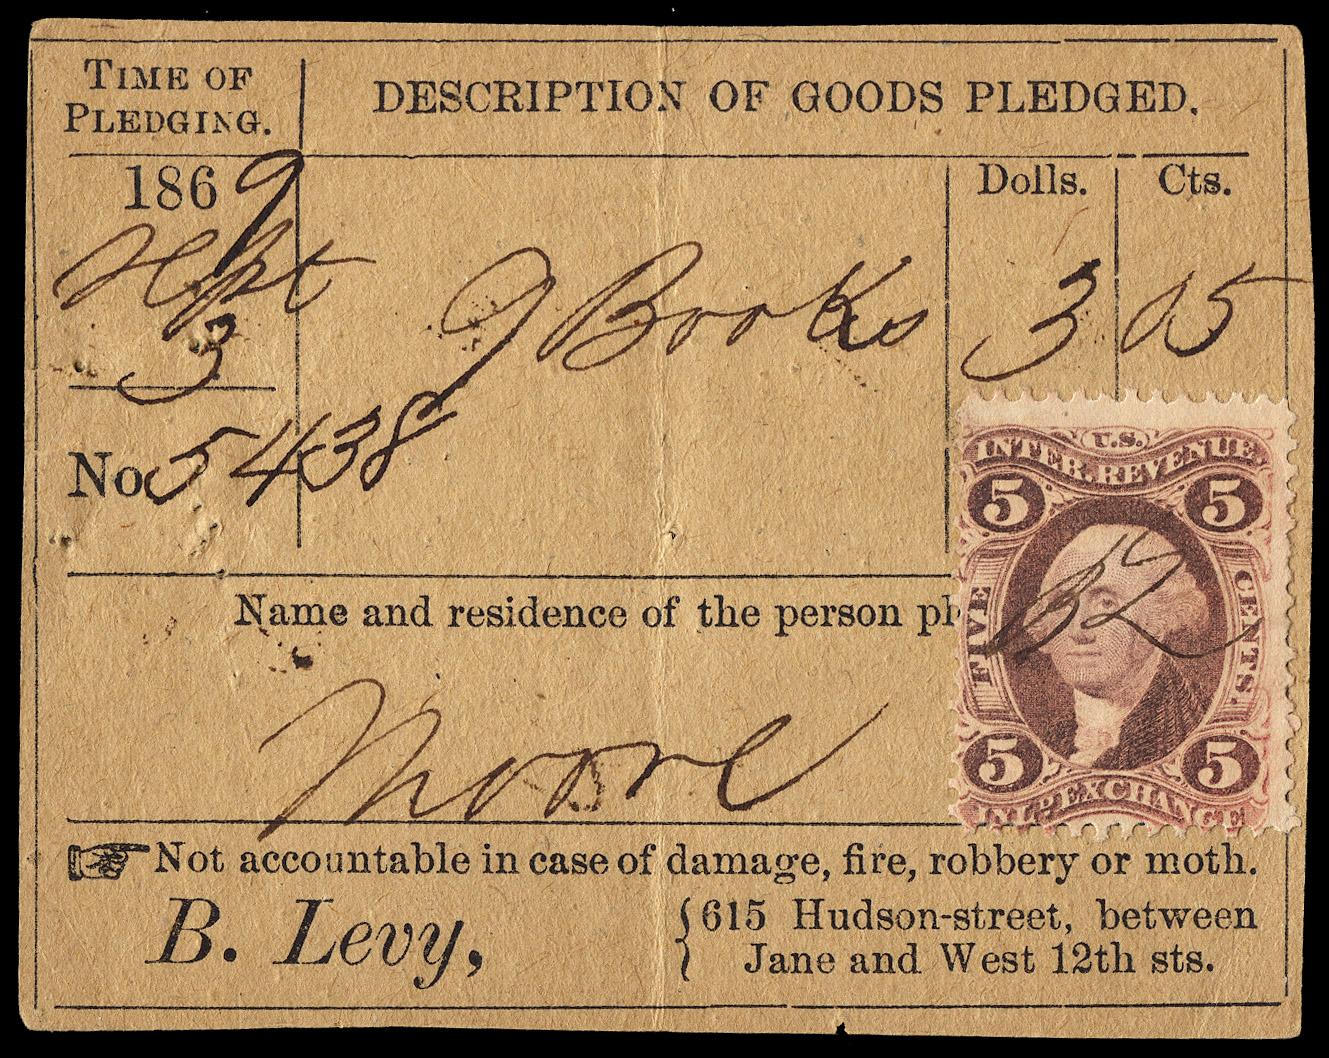 TIME OF PLEDGING.
DESCRIPTION OF GOODS PLEDGED.
1869
Dolls. Cts.
Sept 3
9 Books 3 05
No 5438
U.S.
INTER. REVENUE
5 5
FIVE CENTS.
BL
5 5
INL. EXCHANGE
Name and residence of the person pl
Moore
Not accountable in case of damage, fire, robbery or moth.
B. Levy,
615 Hudson-street, between
Jane and West 12th sts.